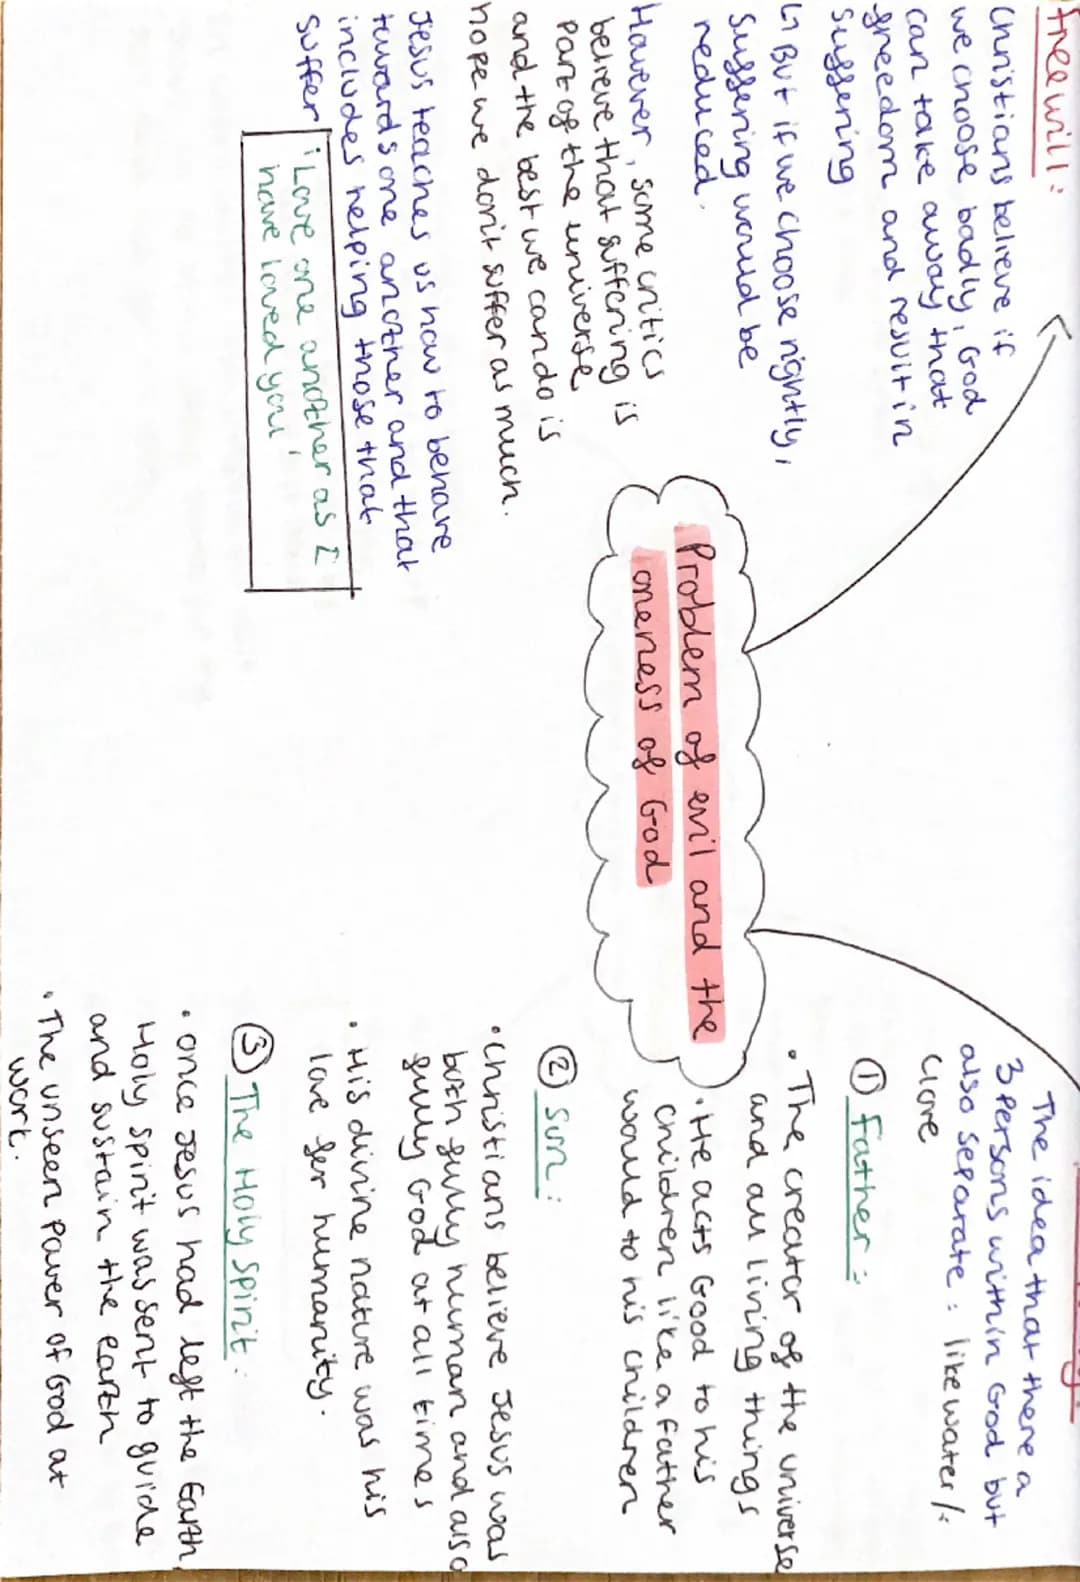 Problem of evil and the
oneness of God
freewill:
Christians believe if
we choose badly, God
can take away that
freedom and result in
suffering
↳ But if we choose rightly,
suffering would be
reduced.
However, some critics
believe that suffering is
part of the universe
and the best we can do is
hope we don't suffer as much.
Jesus teaches us how to behave
towards one another and that
includes helping those that
suffer
"Love one another as I
have loved you"
The idea that there a
3 persons within God but
also separate: like water /
clove
① Father:
• The creator of the universe
and all living things
• He acts Good to his
children like a father
would to his children
② Sun:
• Christians believe Jesus was
both fully human and also
fully God at all times
• His divine nature was his
love for humanity.
③ The Holy Spirit:
• once Jesus had left the Earth,
Holy spirit was sent to guide
and sustain the earth
• The unseen power of God at
work.